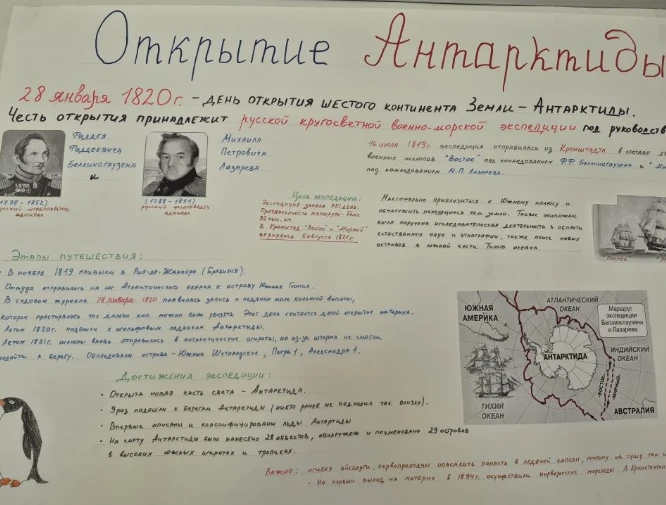 Открытие Антарктиды
28 января 1820г. – день открытия шестого континента Земли – Антарктиды.
Честь открытия принадлежит русской кругосветной военно-морской экспедиции под руководством
Фаддея
Фаддеевича
Беллинсгаузена
и
Михаила
Петровича
Лазарева.
(1788 - 1851)
адмирал
16 июля 1819г. экспедиция отправилась из Кронштадта в составе
военных шлюпов "Восток" под командованием Ф.Ф. Беллинсгаузена и
под командованием М.П. Лазарева.
Цель экспедиции:
Экспедиция заняла 751 день.
Протяженность маршрута более
В Кронштадт "Восток" и "Мирный"
вернулись 5 августа 1821г.
Максимально приблизиться к Южному полюсу и
обнаружить находящиеся там земли. Также экипажам
была поручена исследовательская деятельность в области
естественных наук и этнографии, также поиск новых
островов в южной части Тихого океана.
Этапы путешествия:
В ноябре 1819 прибыли в Рио-де-Жанейро (Бразилия).
Оттуда отправились на юг Атлантического океана к острову Южная Георгия.
В судовом журнале 28 января 1820 появилась запись о ледяном поле большой высоты,
которое простиралось так далеко как можно было увидеть. Этот день считается днём открытия материка.
Летом 1820г. подошли к шельфовым ледникам Антарктиды.
Летом 1821г. шлюпы вновь отправились в антарктические широты, но из-за штормов не смогли
подойти к берегу. Обследовали острова – Южные Шетландские, Петра I, Александра I.
Достижения экспедиции:
• Открыта новая часть света – Антарктида.
• Вплотную подошли к берегам Антарктиды (никто ранее не подходил так близко).
• Впервые описаны и классифицированы льды Антарктиды
• На карту Антарктиды было нанесено 28 объектов, обнаружено и поименовано 29 островов
в высоких южных широтах и тропиках.
Важно:
На первый выход на материк в 1894г. осуществили норвежские моряки
ЮЖНАЯ
АМЕРИКА
АТЛАНТИЧЕСКИЙ
ОКЕАН
Маршрут
экспедиции
Беллинсгаузена
и Лазарева
АНТАРКТИДА
ИНДИЙСКИЙ
ОКЕАН
ТИХИЙ
ОКЕАН
АВСТРАЛИЯ